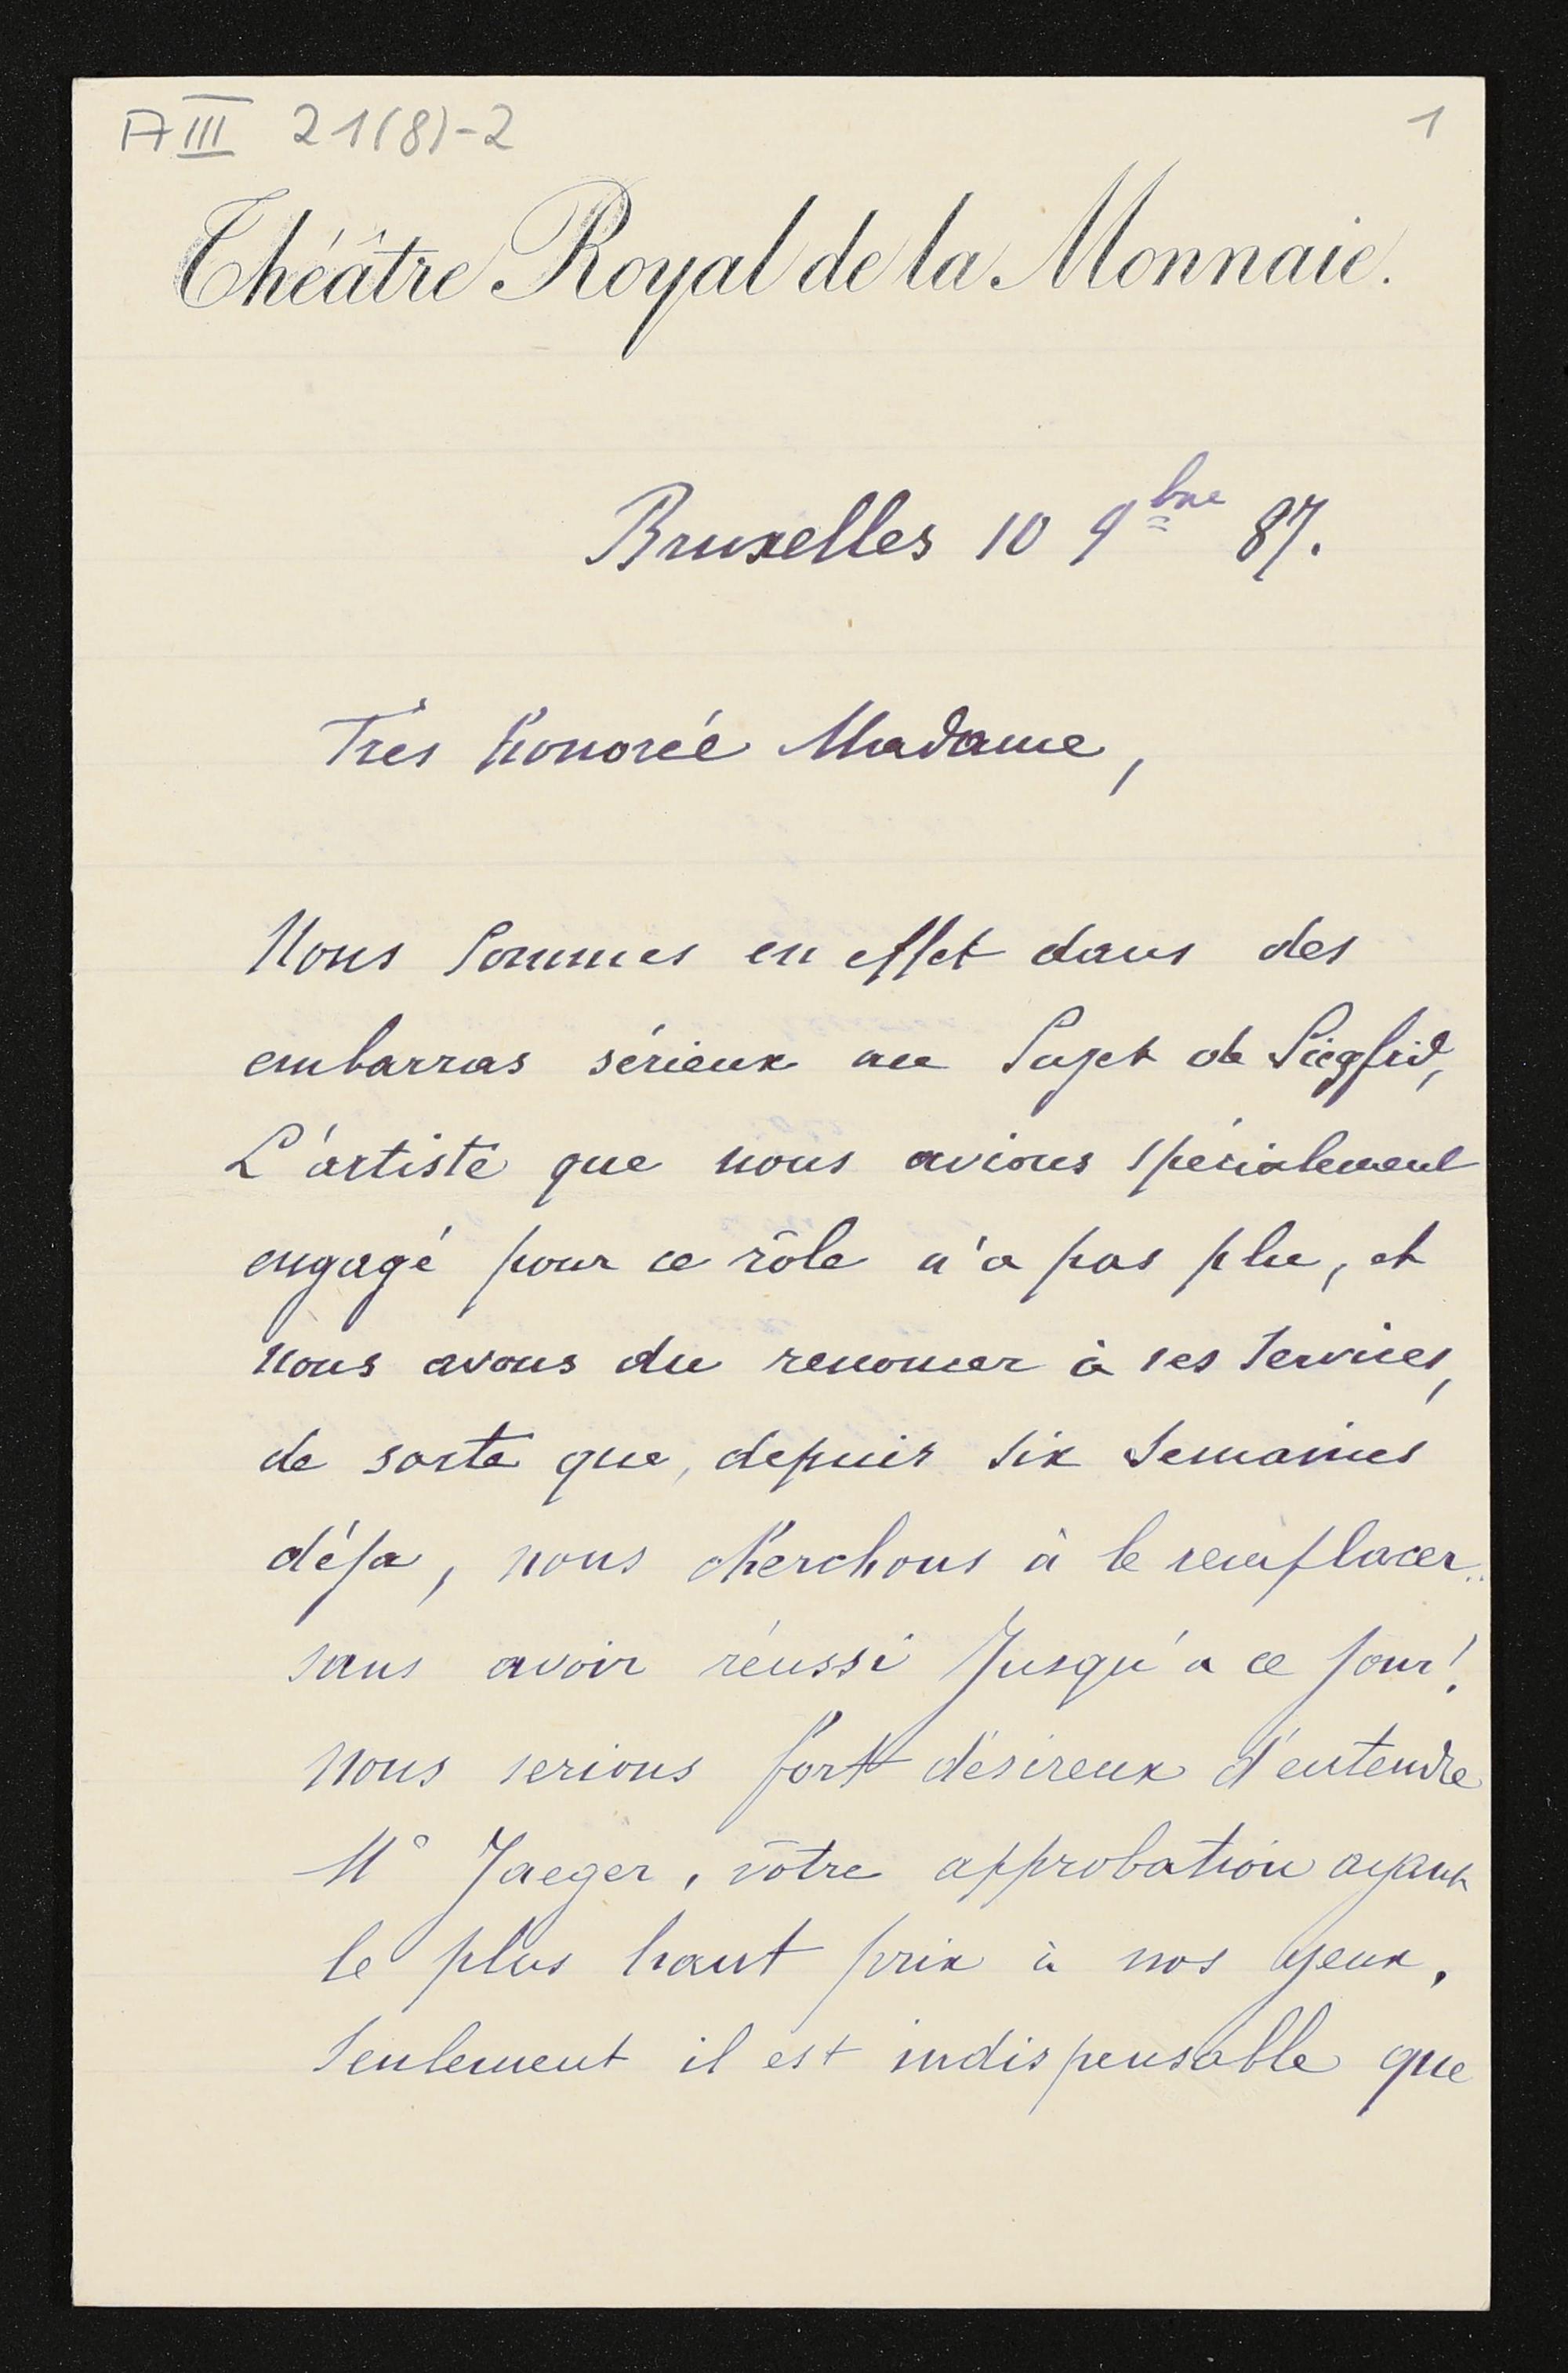 A III 21(8)-2
1
Théâtre Royal de la Monnaie.
Bruxelles 10 9bre 87.
Très honorée Madame,
Nous sommes en effet dans des
embarras sérieux au sujet de Siegfrid,
L'artiste que nous avions spécialement
engagé pour ce rôle n'a pas plu, et
nous avons du renoncer à ses services,
de sorte que, depuis six semaines
déja, nous cherchons à le remplacer..
sans avoir réussi jusqu'a ce jour!
Nous serions fort désireux d'entendre
Mr Jaeger, vôtre approbation ayant
le plus haut prix à nos yeux.
Seulement il est indispensable que